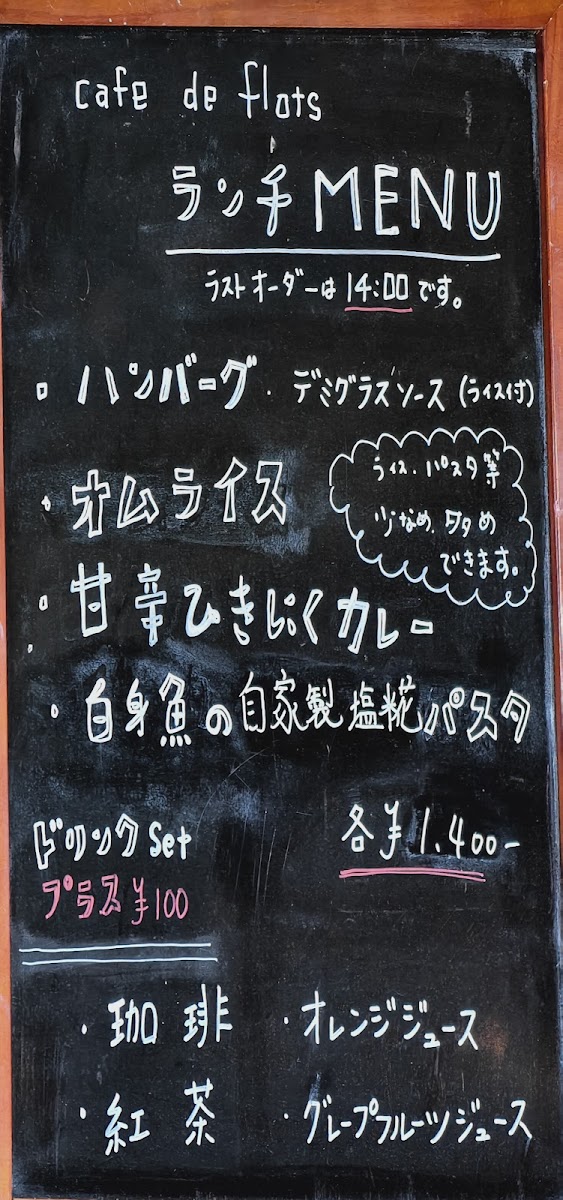 cafe de flots
ランチMENU
ラストオーダーは14:00です。
ハンバーグ・デミグラスソース(ライス付)
ライス、パスタ等
少なめ、多め
できます。
・オムライス
甘辛ひきにくカレー
・白身魚の自家製塩糀パスタ
ドリンクSet
プラス¥100
各¥1.400-
・珈琲
・オレンジジュース
・紅茶
・グレープフルーツジュース